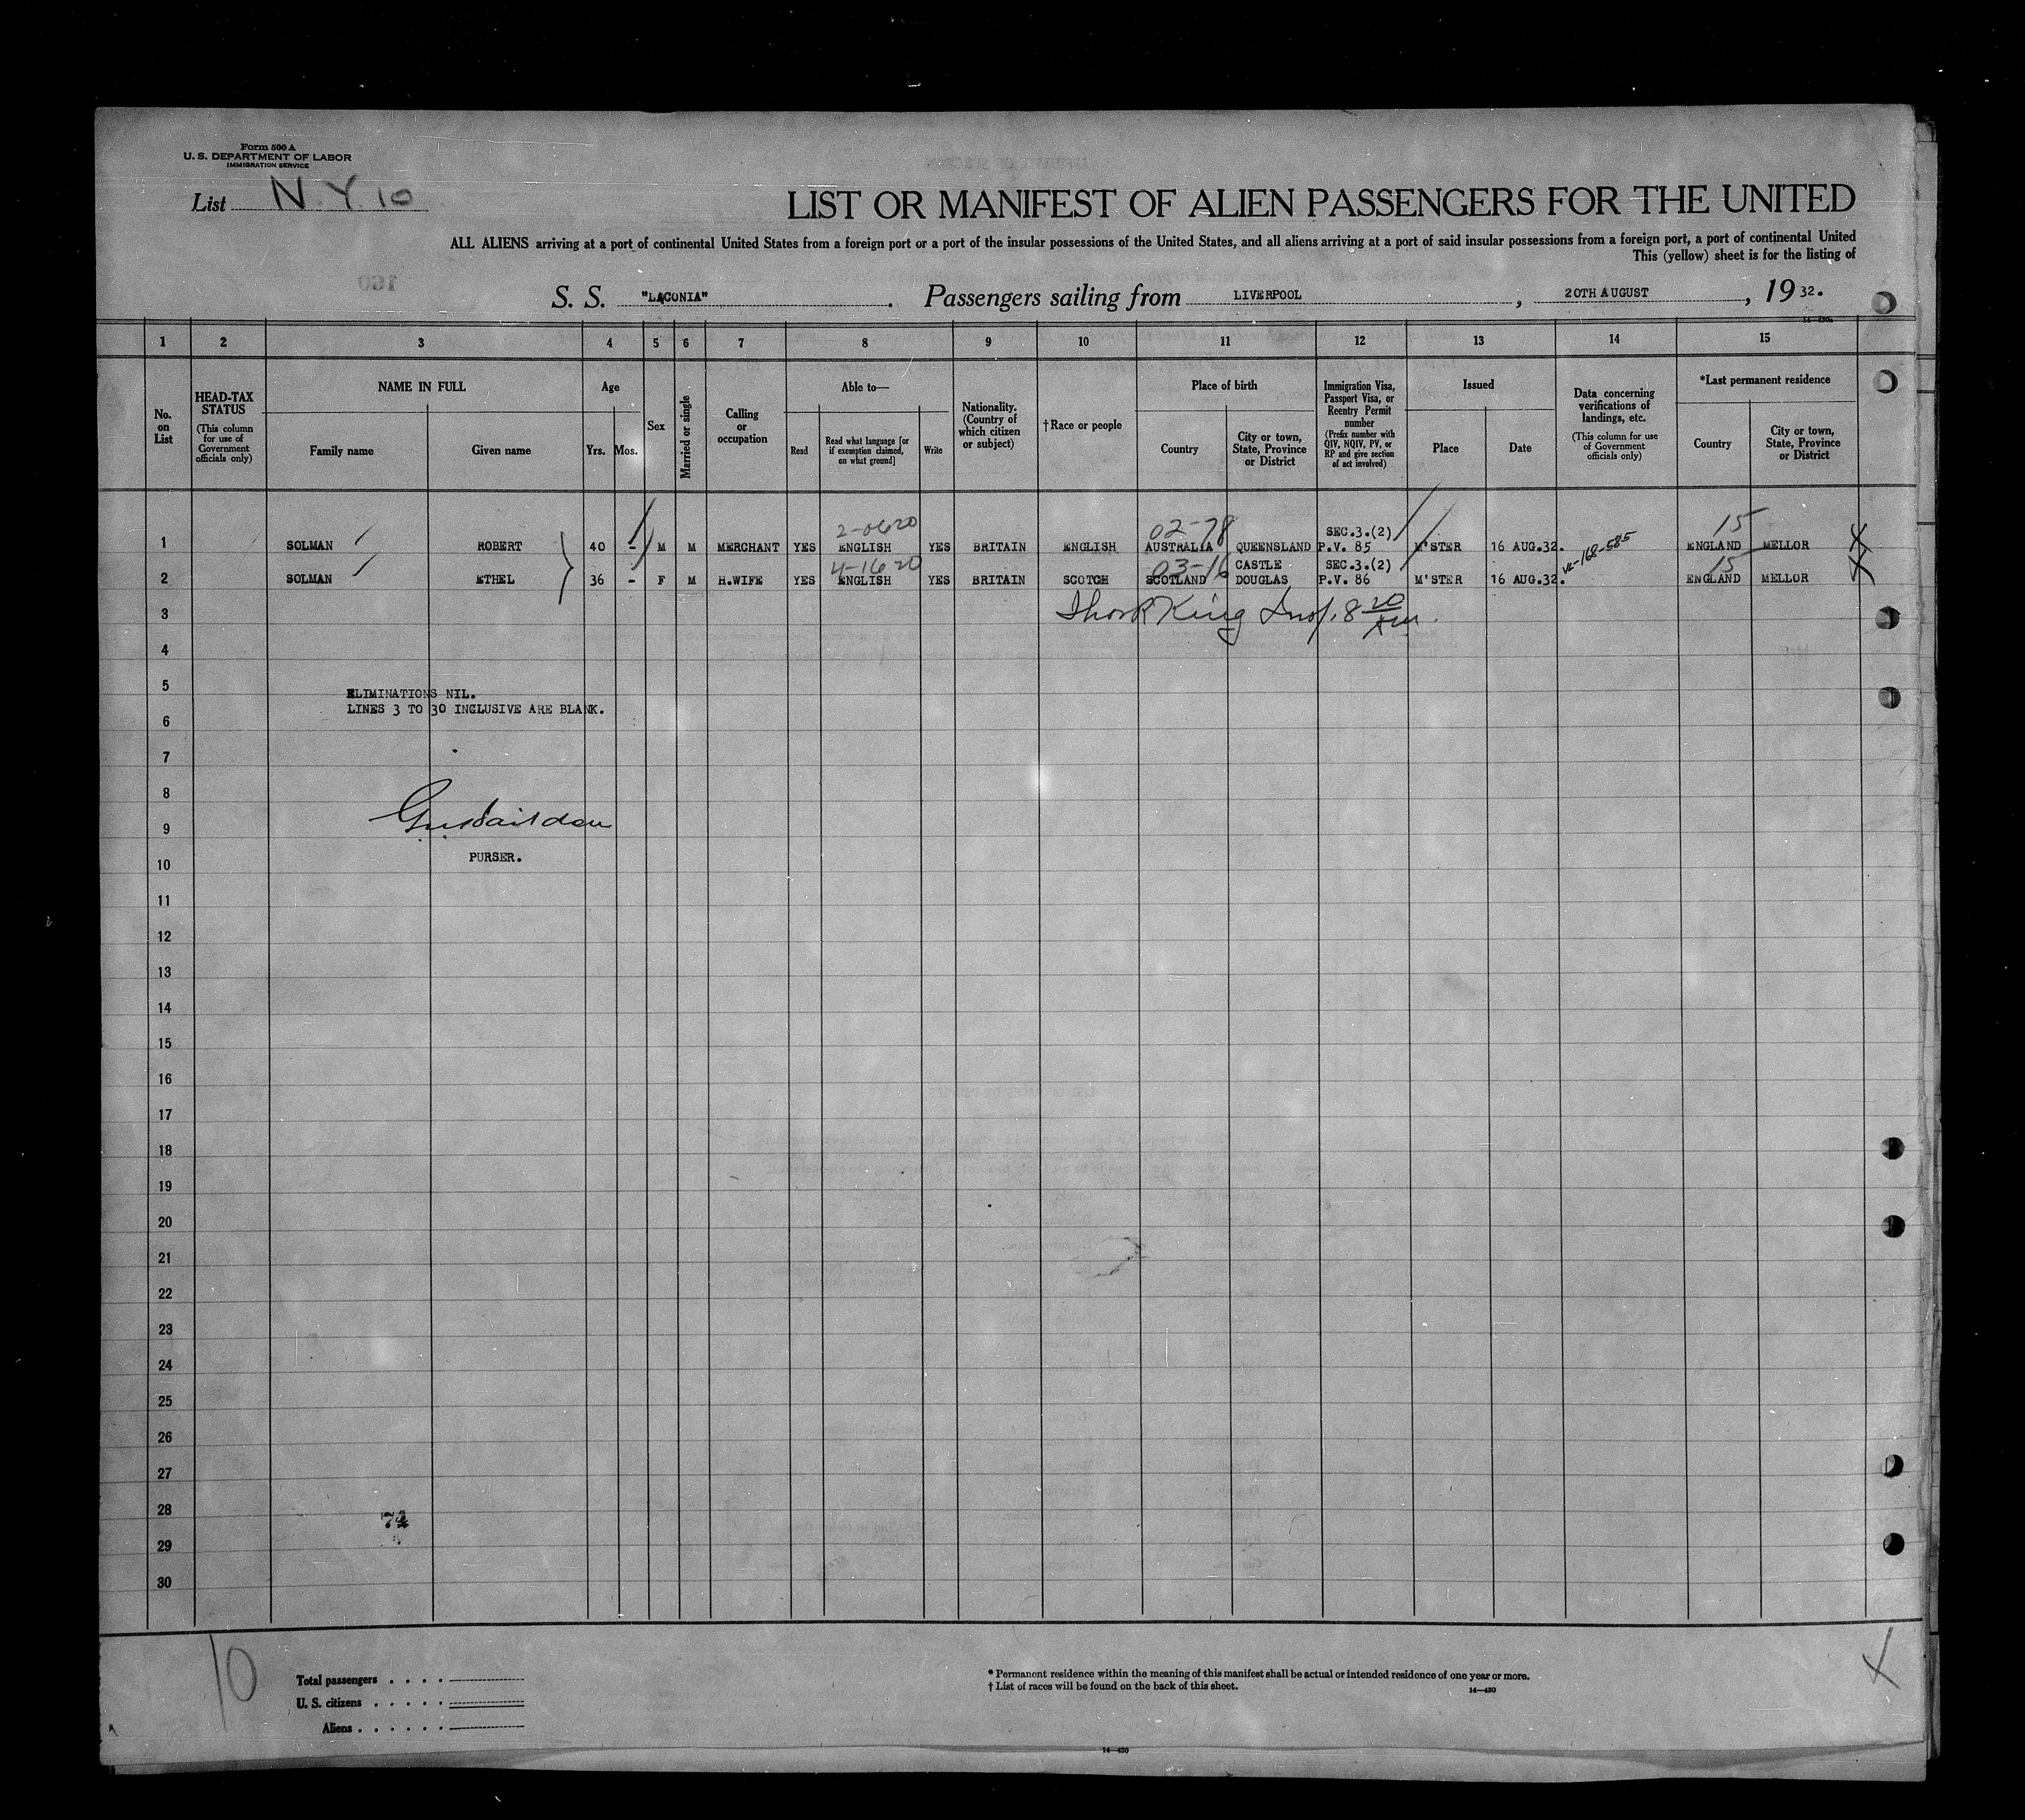 Form 500 A
U. S. DEPARTMENT OF LABOR
IMMIGRATION SERVICE
List N. Y. 10
LIST OR MANIFEST OF ALIEN PASSENGERS FOR THE UNITED
ALL ALIENS arriving at a port of continental United States from a foreign port or a port of the insular possessions of the United States, and all aliens arriving at a port of said insular possessions from a foreign port, a port of continental United
This (yellow) sheet is for the listing of
160
S. S. "LACONIA" . Passengers sailing from LIVERPOOL , 20TH AUGUST , 19 32.
14—430a
1 2 3 4 5 6 7 8 9 10 11 12 13 14 15
No. on List
HEAD-TAX STATUS (This column for use of Government officials only)
NAME IN FULL
Family name Given name
Age
Yrs. Mos.
Sex
Married or single
Calling or occupation
Able to—
Read Read what language [or if exemption claimed, on what ground] Write
Nationality. (Country of which citizen or subject)
†Race or people
Place of birth
Country City or town, State, Province or District
Immigration Visa, Passport Visa, or Reentry Permit number (Prefix number with QIV, NQIV, PV, or RP and give section of act involved)
Issued
Place Date
Data concerning verifications of landings, etc. (This column for use of Government officials only)
*Last permanent residence
Country City or town, State, Province or District
2-0620 02-78 SEC.3.(2) 15
1 SOLMAN ROBERT 40 - M M MERCHANT YES ENGLISH YES BRITAIN ENGLISH AUSTRALIA QUEENSLAND P.V. 85 M'STER 16 AUG.32. ENGLAND MELLOR
4-1620 03-16 CASTLE SEC.3.(2) 168-585 15
2 SOLMAN ETHEL 36 - F M H.WIFE YES ENGLISH YES BRITAIN SCOTCH SCOTLAND DOUGLAS P.V. 86 M'STER 16 AUG.32. ENGLAND MELLOR
3 King Insp. 8 20
4
5
ELIMINATIONS NIL.
LINES 3 TO 30 INCLUSIVE ARE BLANK.
6
7
8
9
PURSER.
10
11
12
13
14
15
16
17
18
19
20
21
22
23
24
25
26
27
28
74
29
30
10
Total passengers . . . .
U. S. citizens . . . . .
Aliens . . . . . .
* Permanent residence within the meaning of this manifest shall be actual or intended residence of one year or more.
† List of races will be found on the back of this sheet.
14—430
14—430